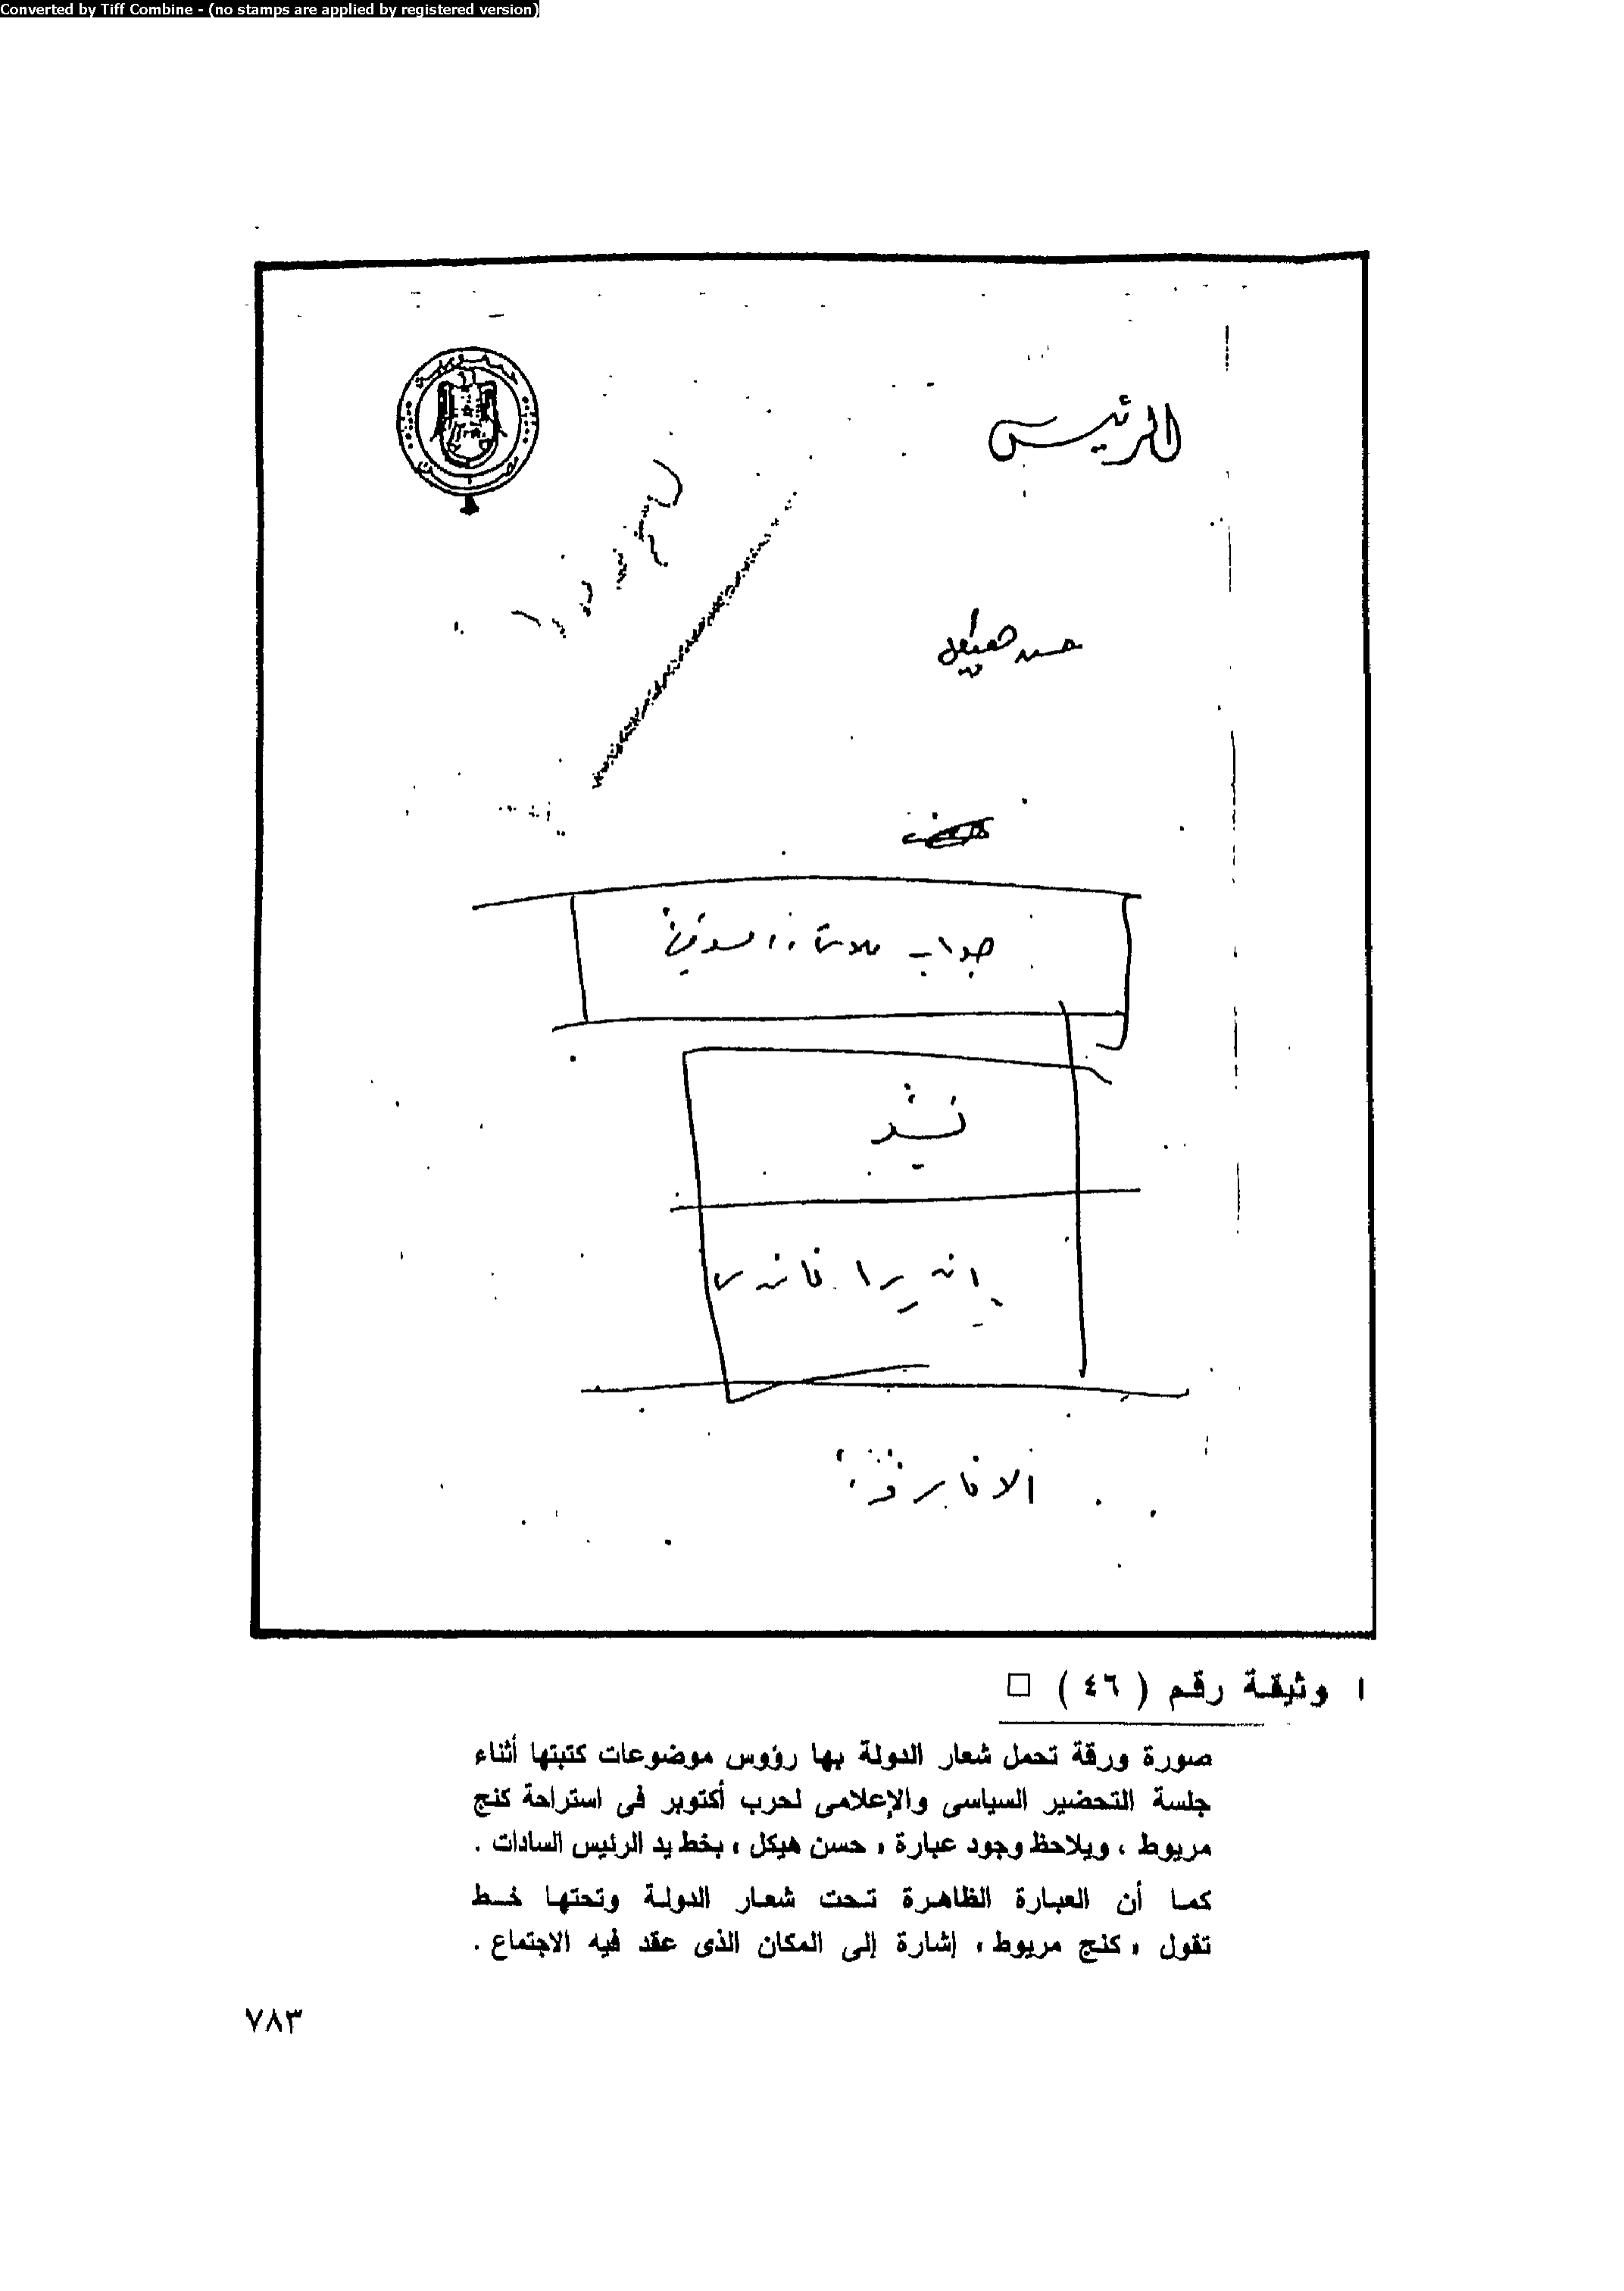 Converted by Tiff Combine - (no stamps are applied by registered version)
الرئيس
كنج مريوط
حسن هيكل
جواب للاتحاد السوفيتى
نشر
انديرا غاندى
الافارقة
ا وثيقة رقم ( ٤٦ ) □
صورة ورقة تحمل شعار الدولة بها رؤوس موضوعات كتبتها أثناء
جلسة التحضير السياسى والإعلامى لحرب أكتوبر فى استراحة كنج
مريوط ، ويلاحظ وجود عبارة « حسن هيكل » بخط يد الرئيس السادات .
كما أن العبارة الظاهرة تحت شعار الدولة وتحتها خط
تقول « كنج مريوط » إشارة إلى المكان الذى عقد فيه الاجتماع .
٧٨٣